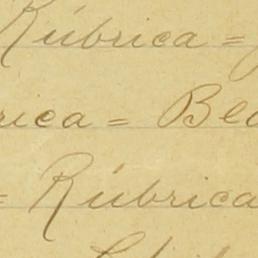 Rúbrica =
rica = Be
= Rúbrica